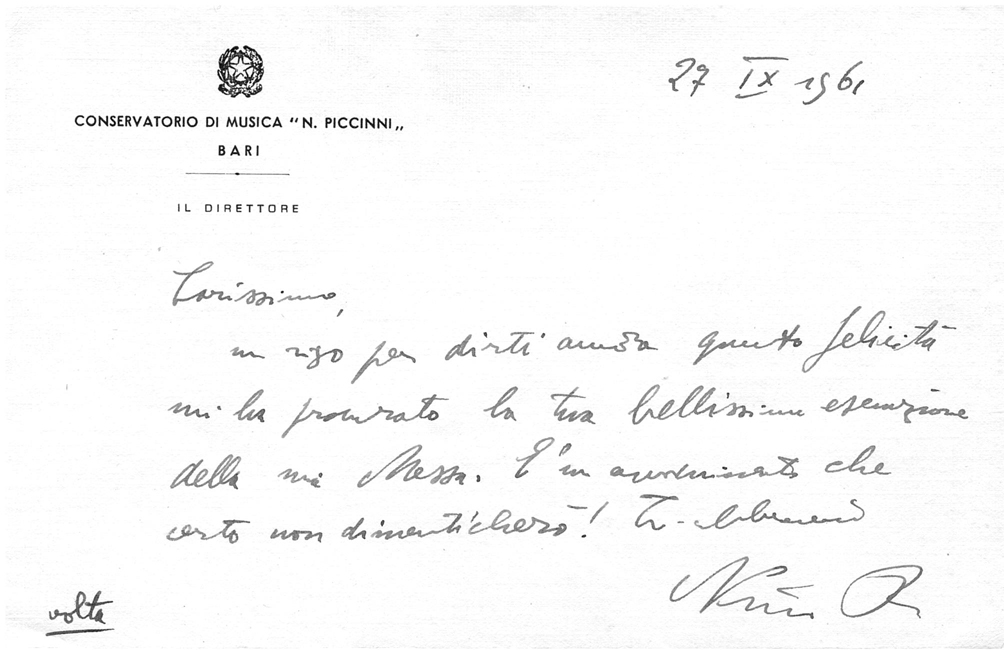 27 IX 1961
CONSERVATORIO DI MUSICA "N. PICCINNI„
BARI
IL DIRETTORE
Carissimo,
un rigo per dirti ancora quanta felicità
mi ha procurato la tua bellissima esecuzione
della mia Messa. E' un avvenimento che
certo non dimenticherò! Ti abbraccio
Nino R
volta